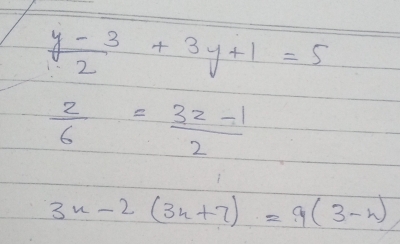 (y - 3)/2 + 3y + 1 = 5
z/6 = (3z - 1)/2
3x - 2 (3x + 7) = 9 (3 - x)